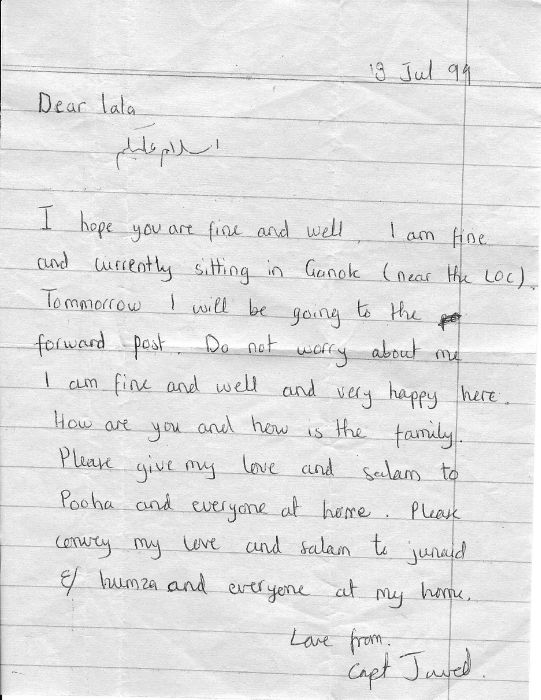 13 Jul 99
Dear lala
اسلام علیکم
I hope you are fine and well, I am fine
and currently sitting in Ganok (near the LOC).
Tommorrow I will be going to the
forward post. Do not worry about me
I am fine and well and very happy here.
How are you and how is the family.
Please give my love and salam to
Pooha and everyone at home. Please
convey my love and salam to junaid
& humza and everyone at my home.
Love from.
Capt Javed.